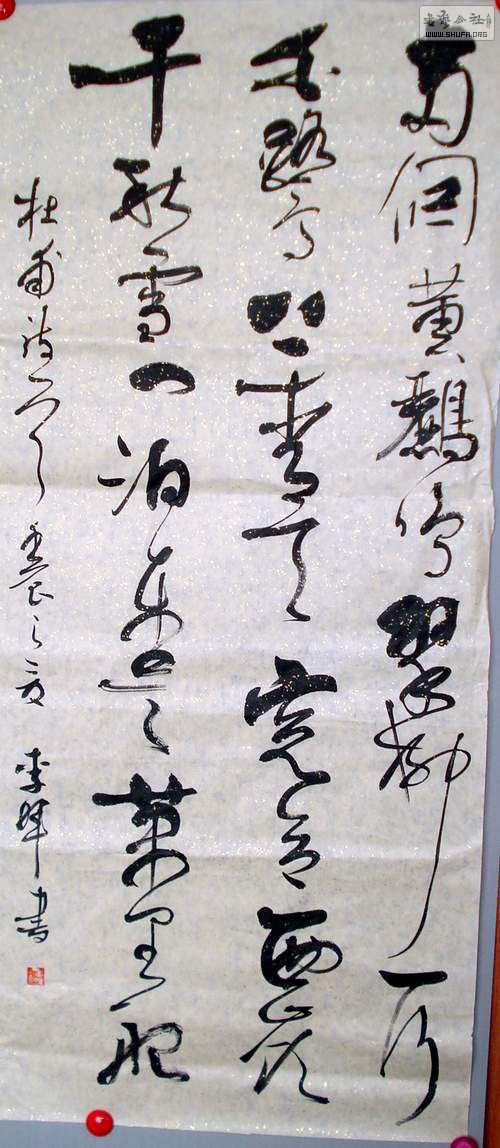 两個黄鸝鸣翠柳一行
鷺上青天窗含西岭
千秋雪门泊东吴萬里船
杜甫诗一首 之夏 李辉書
书艺公社
WWW.SHUFA.ORG